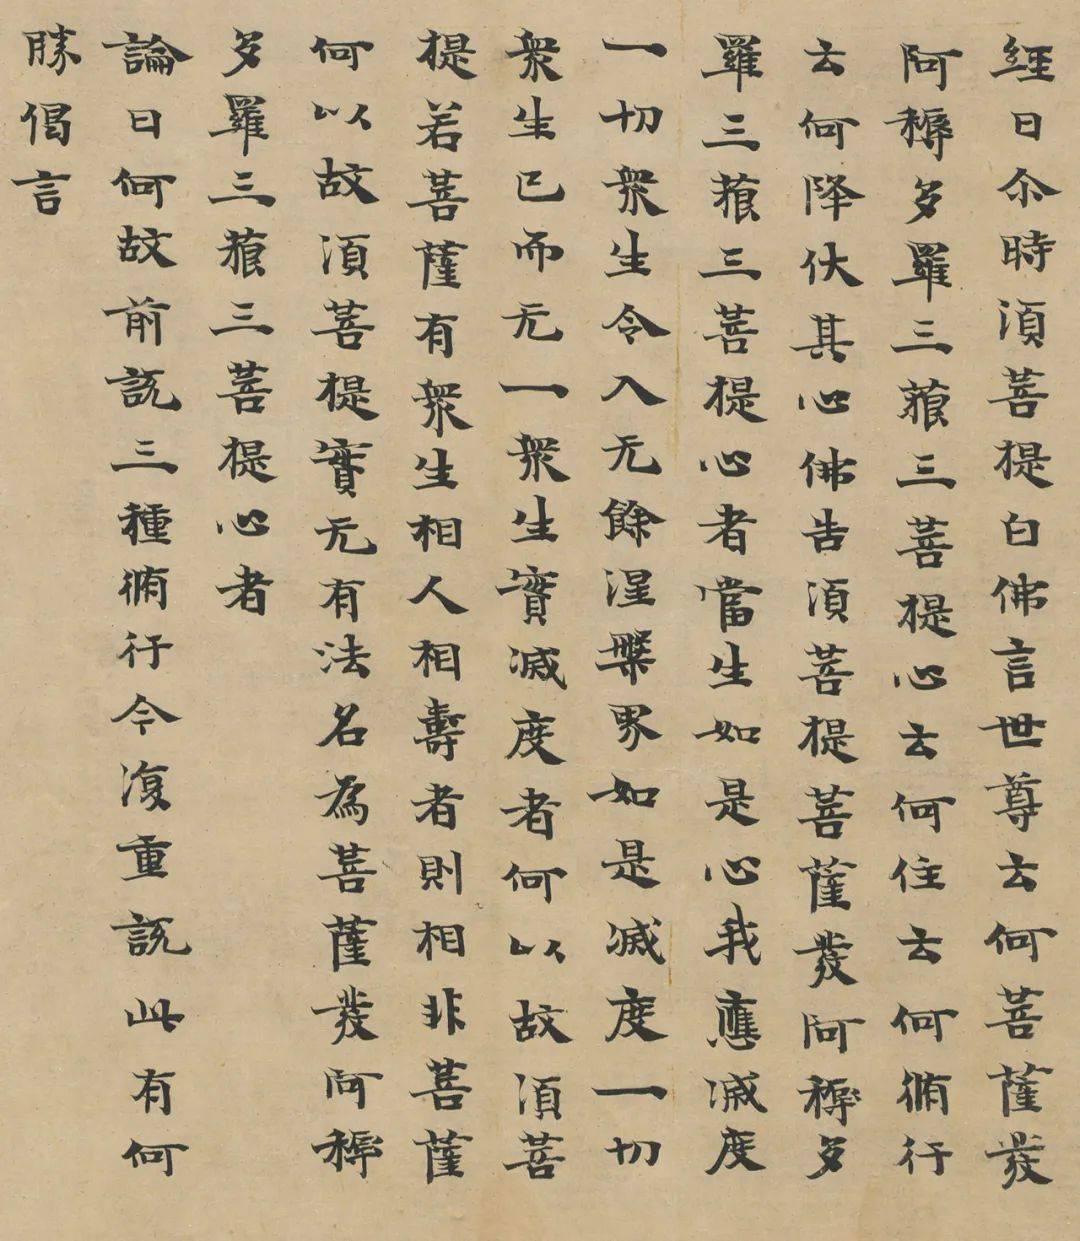 經曰尒時湏菩提白佛言世尊云何菩薩發
阿稱多羅三藐三菩提心云何住云何脩行
云何降伏其心佛告湏菩提菩薩發阿稱多
羅三藐三菩提心者當生如是心我應滅度
一切衆生令入无餘涅槃界如是滅度一切
衆生已而无一衆生實滅度者何以故湏菩
提若菩薩有衆生相人相壽者則相非菩薩
何以故湏菩提實无有法名為菩薩發阿稱
多羅三藐三菩提心者
論曰何故前說三種脩行今復重說此有何
勝偈言